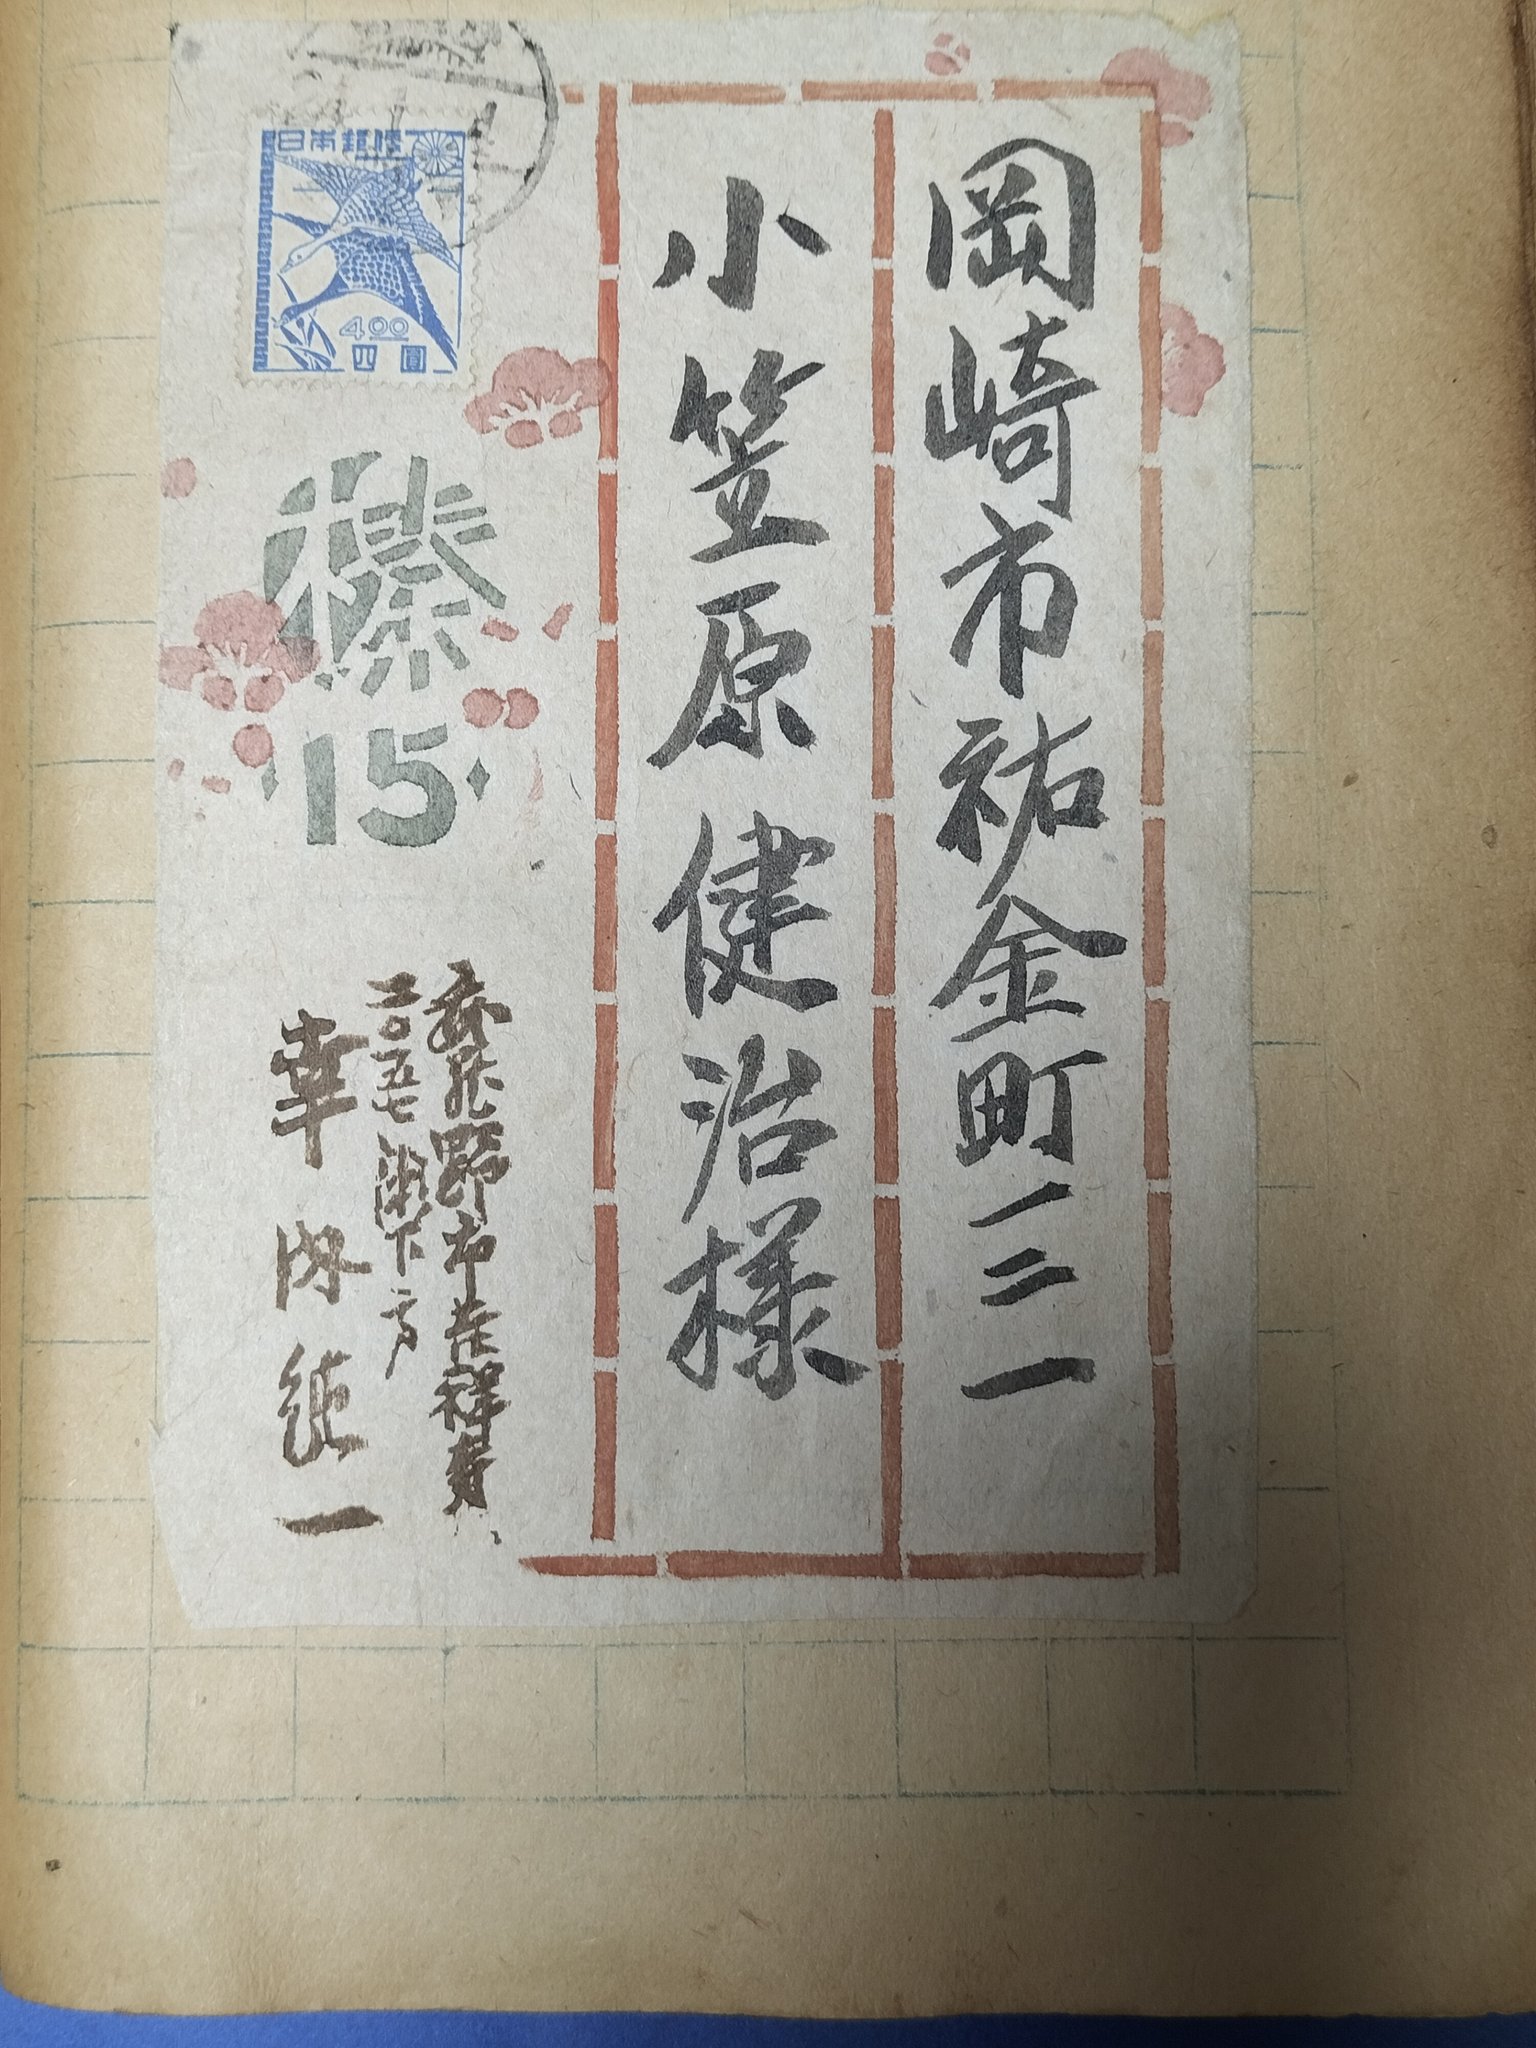 岡崎市祐金町三一
小笠原健治様
日本郵便
4.00
四圓
榛
15
武蔵野市吉祥寺
二〇五七 瀬下方
幸内純一